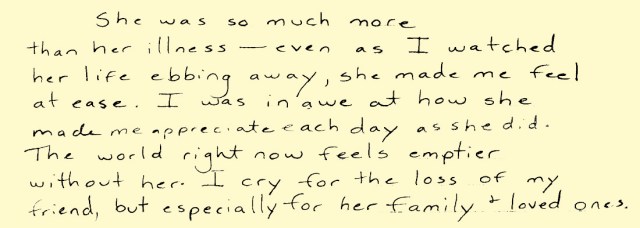 She was so much more
than her illness — even as I watched
her life ebbing away, she made me feel
at ease. I was in awe at how she
made me appreciate each day as she did.
The world right now feels emptier
without her. I cry for the loss of my
friend, but especially for her family + loved ones.